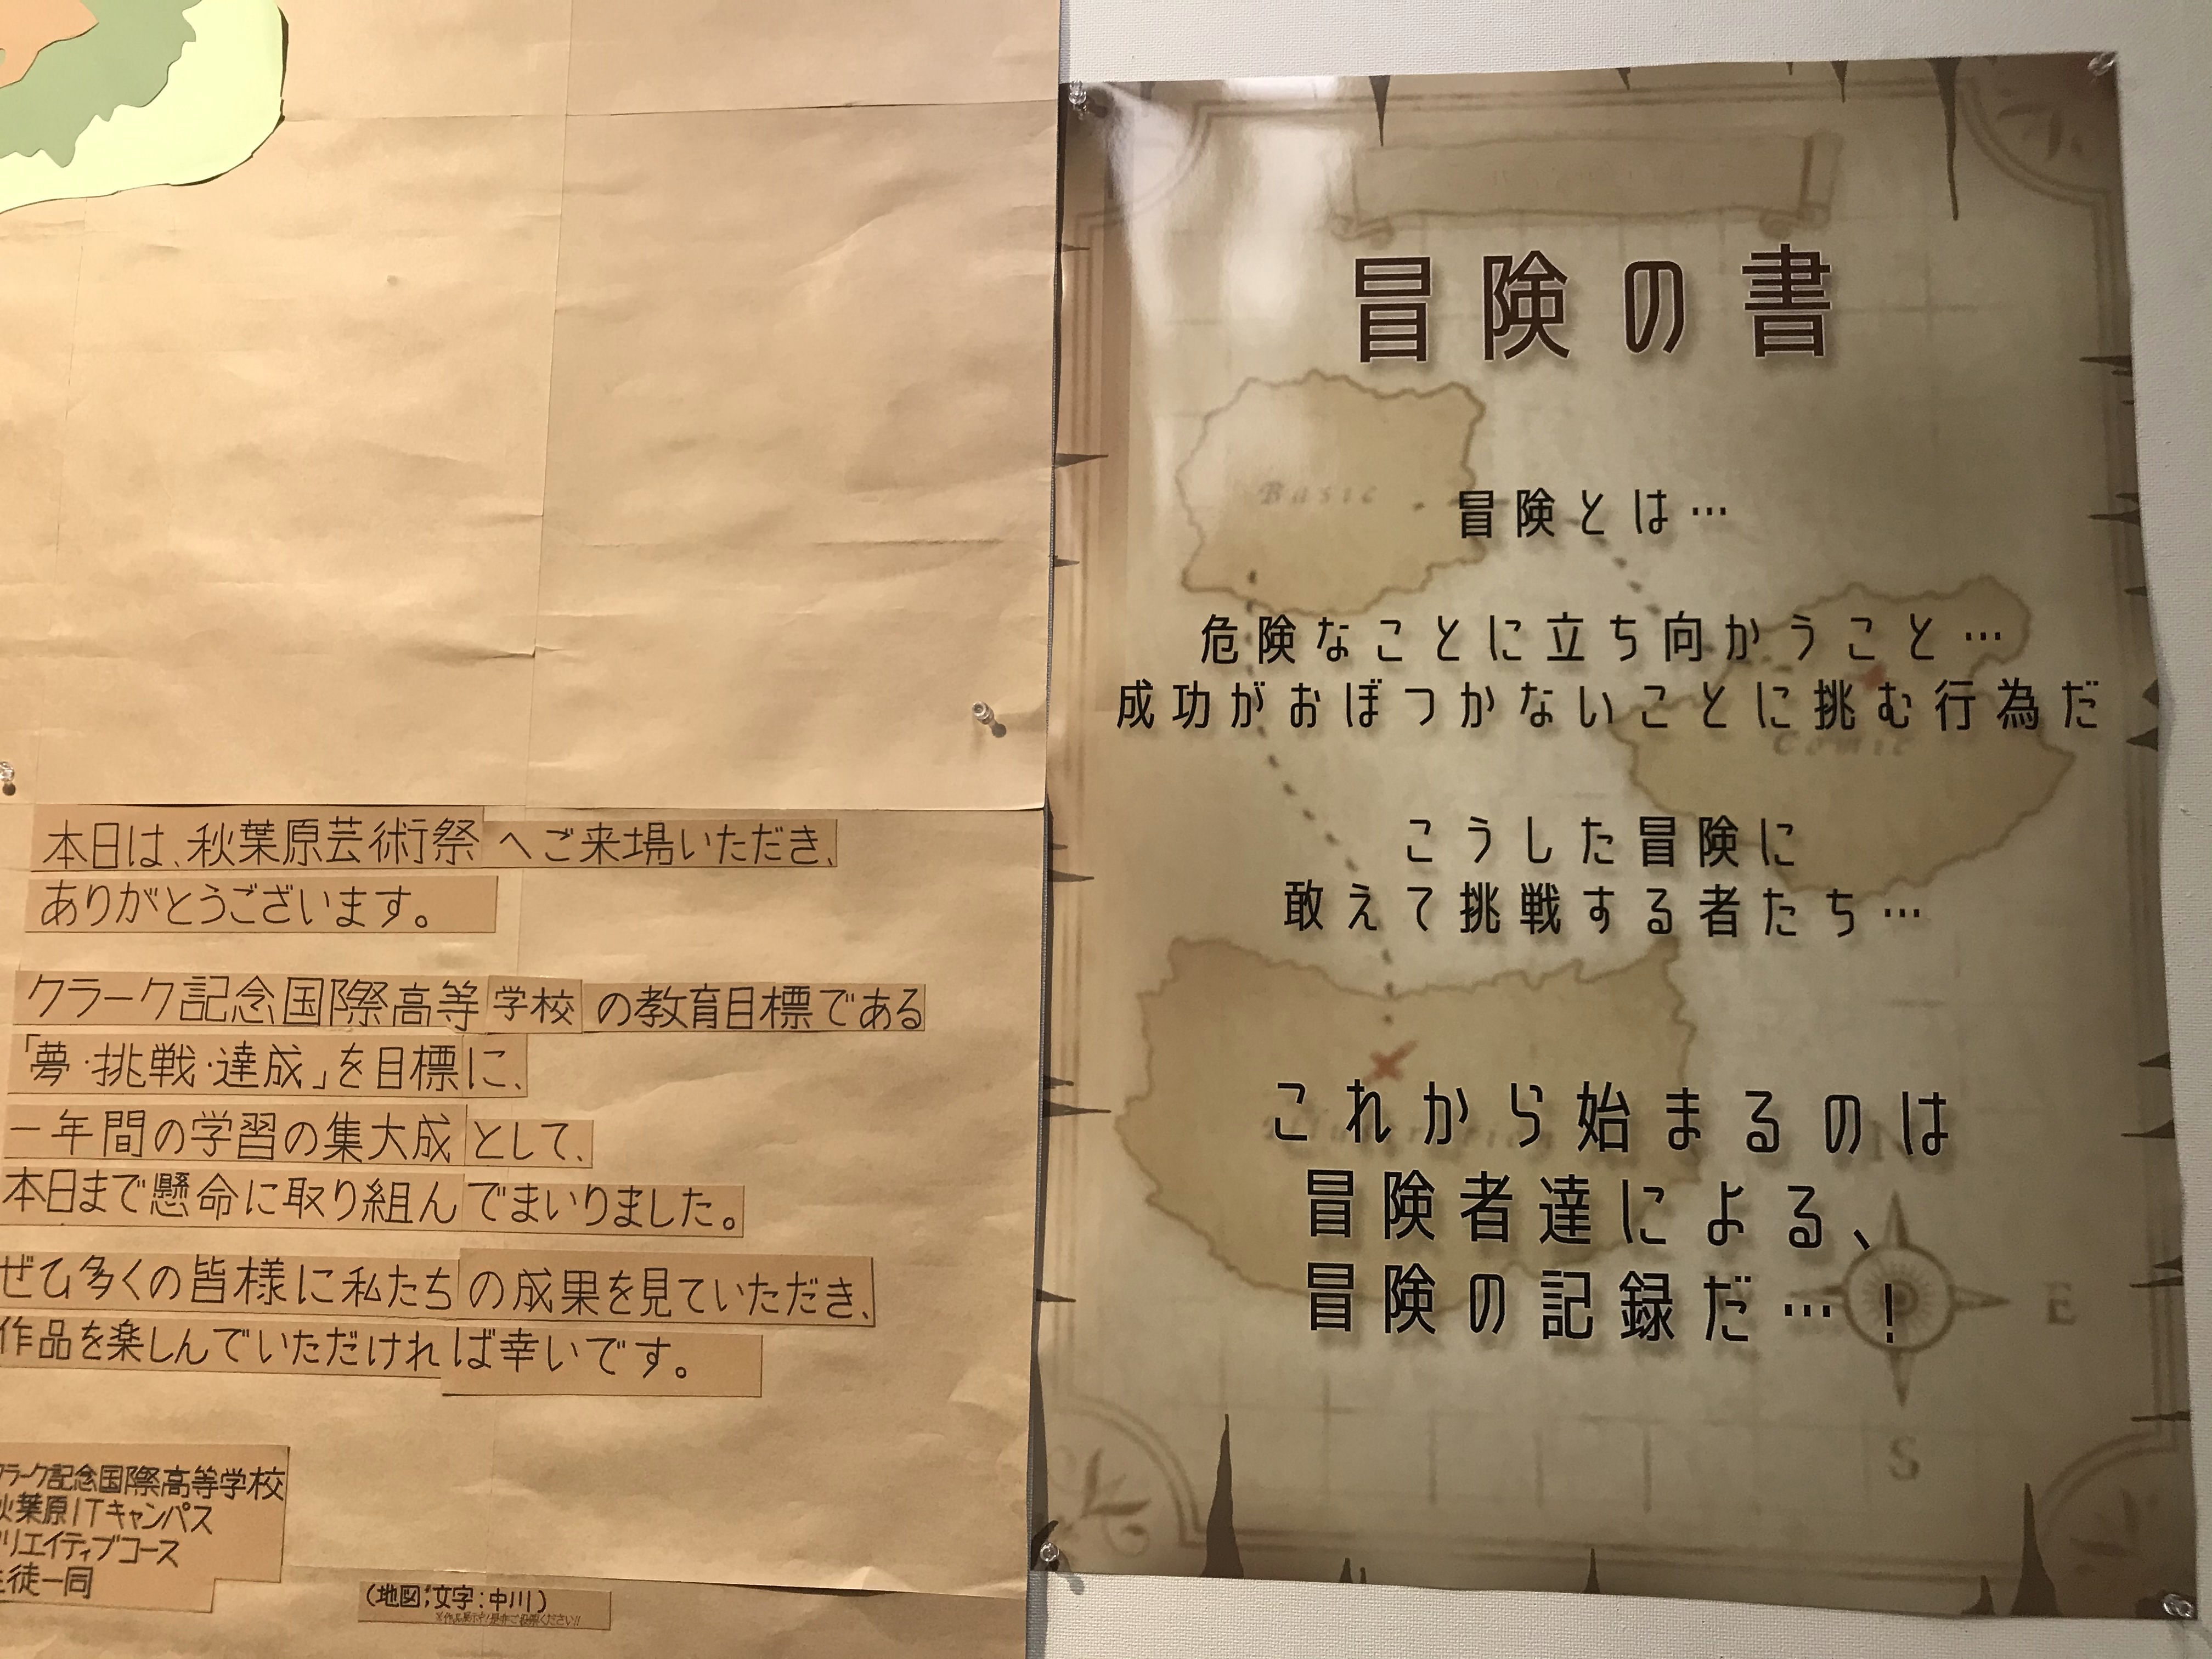 本日は、秋葉原芸術祭へご来場いただき、
ありがとうございます。
クラーク記念国際高等学校の教育目標である
「夢・挑戦・達成」を目標に、
一年間の学習の集大成として、
本日まで懸命に取り組んでまいりました。
ぜひ多くの皆様に私たちの成果を見ていただき、
作品を楽しんでいただければ幸いです。
クラーク記念国際高等学校
秋葉原ITキャンパス
クリエイティブコース
生徒一同
(地図;文字:中川)
冒険の書
Basic
冒険とは…
危険なことに立ち向かうこと…
成功がおぼつかないことに挑む行為だ
Comic
こうした冒険に
敢えて挑戦する者たち…
これから始まるのは
N
冒険者達による、
冒険の記録だ…!
E
S